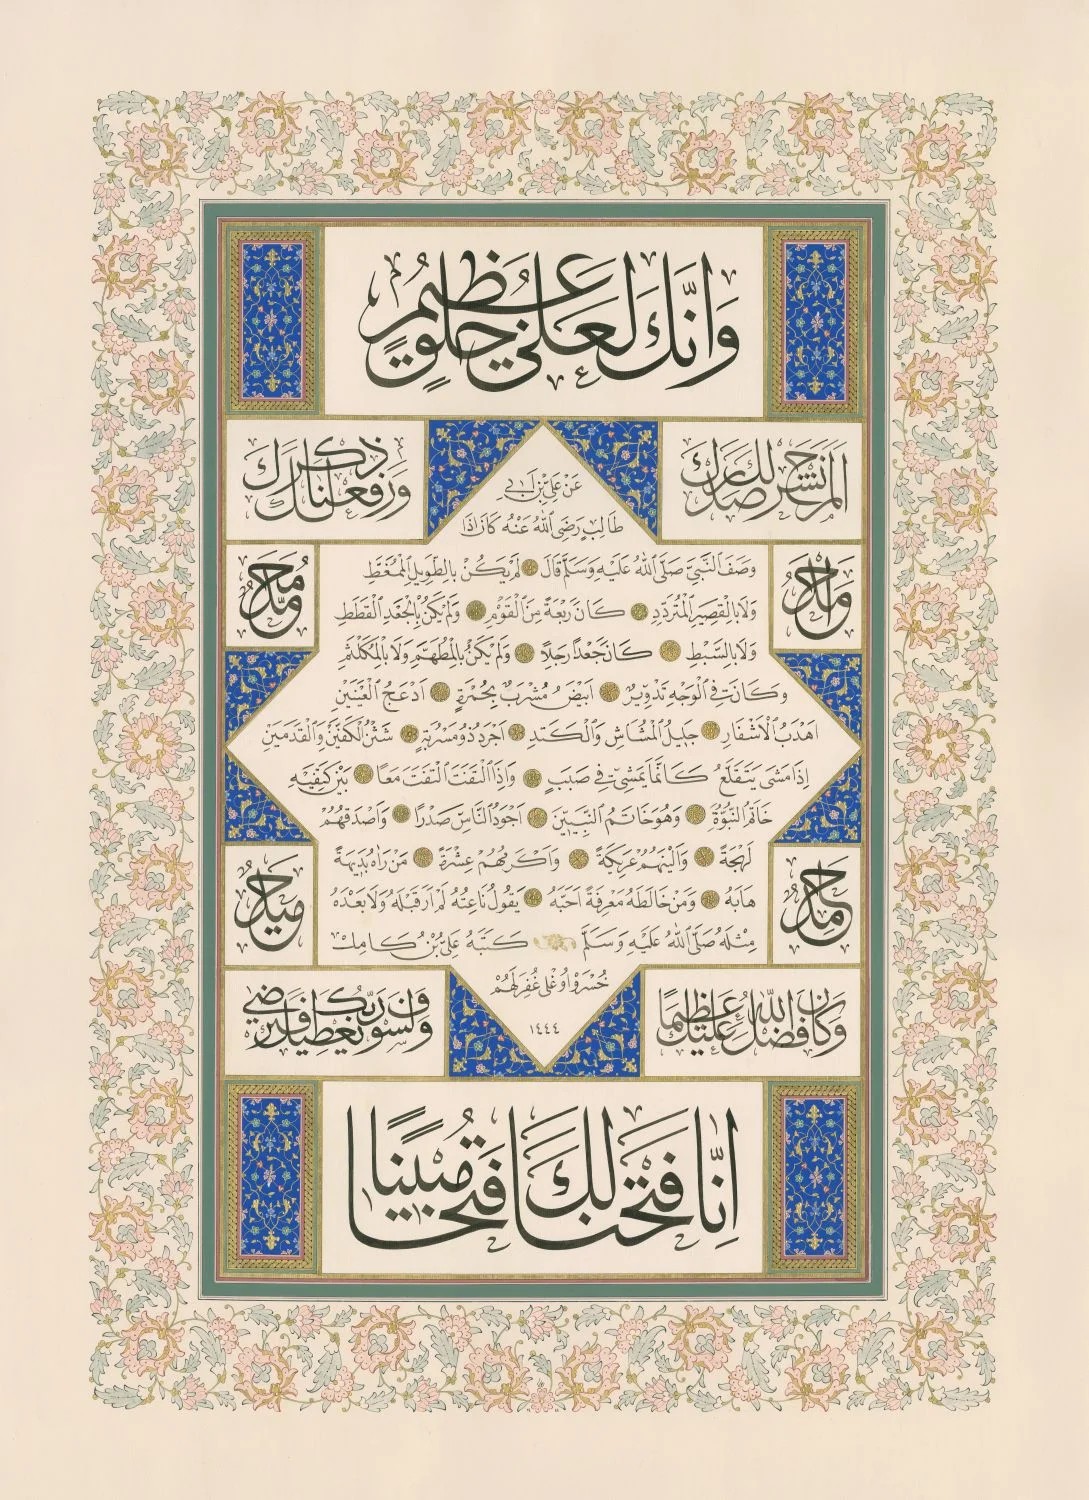 وَإِنَّكَ لَعَلَىٰ خُلُقٍ عَظِيمٍ
أَلَمْ نَشْرَحْ لَكَ صَدْرَكَ
وَرَفَعْنَا لَكَ ذِكْرَكَ
عَنْ عَلِيِّ بْنِ اَبِي
طَالِبٍ رَضِيَ اللّٰهُ عَنْهُ كَانَ اِذَا
اَحْمَدُ
مُحَمَّدٌ
وَصَفَ النَّبِيَّ صَلَّى اللّٰهُ عَلَيْهِ وَسَلَّمَ قَالَ لَمْ يَكُنْ بِالطَّوِيلِ الْمُمَّغِطِ
وَلَا بِالْقَصِيرِ الْمُتَرَدِّدِ كَانَ رَبْعَةً مِنَ الْقَوْمِ وَلَمْ يَكُنْ بِالْجَعْدِ الْقَطَطِ
وَلَا بِالسَّبْطِ كَانَ جَعْدًا رَجِلًا وَلَمْ يَكُنْ بِالْمُطَهَّمِ وَلَا بِالْمُكَلْثَمِ
وَكَانَ فِي الْوَجْهِ تَدْوِيرٌ اَبْيَضُ مُشْرَبٌ بِحُمْرَةٍ اَدْعَجُ الْعَيْنَيْنِ
اَهْدَبُ الْاَشْفَارِ جَلِيلُ الْمُشَاشِ وَالْكَتَدِ اَجْرَدُ ذُو مَسْرُبَةٍ شَثْنُ الْكَفَّيْنِ وَالْقَدَمَيْنِ
اِذَا مَشَى يَتَقَلَّعُ كَاَنَّمَا يَمْشِي فِي صَبَبٍ وَاِذَا الْتَفَتَ الْتَفَتَ مَعًا بَيْنَ كَتِفَيْهِ
خَاتَمُ النُّبُوَّةِ وَهُوَ خَاتَمُ النَّبِيِّينَ اَجْوَدُ النَّاسِ صَدْرًا وَاَصْدَقُهُمْ
لَهْجَةً وَاَلْيَنُهُمْ عَرِيكَةً وَاَكْرَمُهُمْ عِشْرَةً مَنْ رَاٰهُ بَدِيهَةً
هَابَهُ وَمَنْ خَالَطَهُ مَعْرِفَةً اَحَبَّهُ يَقُولُ نَاعِتُهُ لَمْ اَرَ قَبْلَهُ وَلَا بَعْدَهُ
مِثْلَهُ صَلَّى اللّٰهُ عَلَيْهِ وَسَلَّمَ كَتَبَهُ عَلِيُّ بْنُ كَامِلْ
حَامِدٌ
خُسْرَوْ اُوغْلِي غُفِرَ لَهُمْ
١٤٤٤
وَكَانَ فَضْلُ اللّٰهِ عَلَيْكَ عَظِيمًا
وَلَسَوْفَ يُعْطِيكَ رَبُّكَ فَتَرْضَى
اِنَّا فَتَحْنَا لَكَ فَتْحًا مُبِينًا